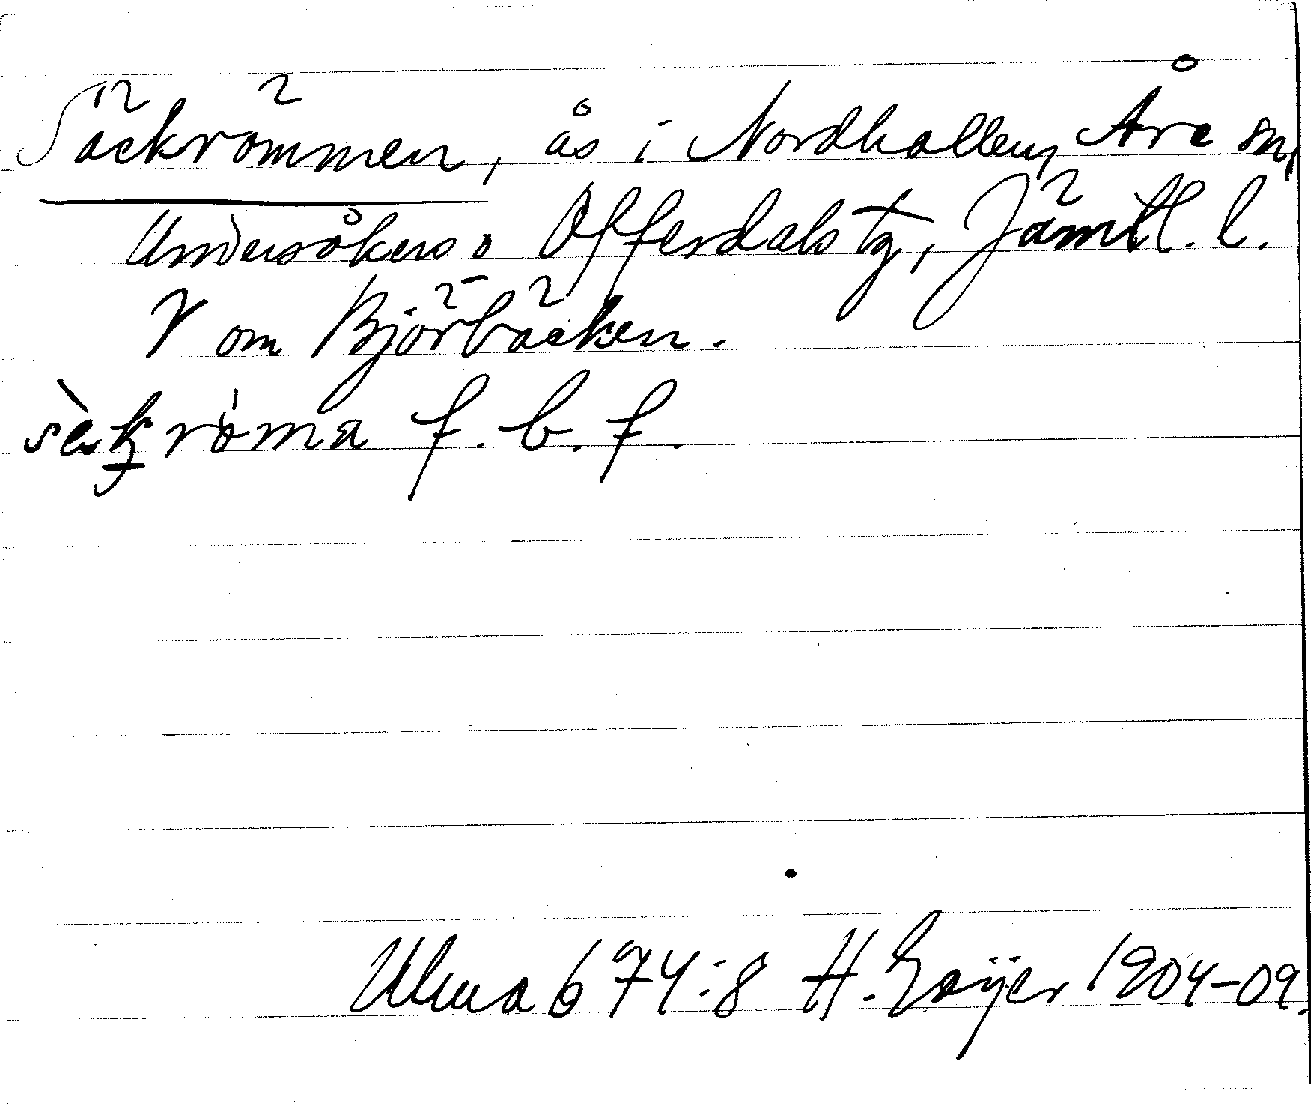 Säckrömmen, ås i Nordhallen, Åre sn,
Undersåkers o Offerdals tg, Jämtl. l.
V om Björbäcken.
f. b. f.
Ulma 674:8 H. Geijer 1904-09.